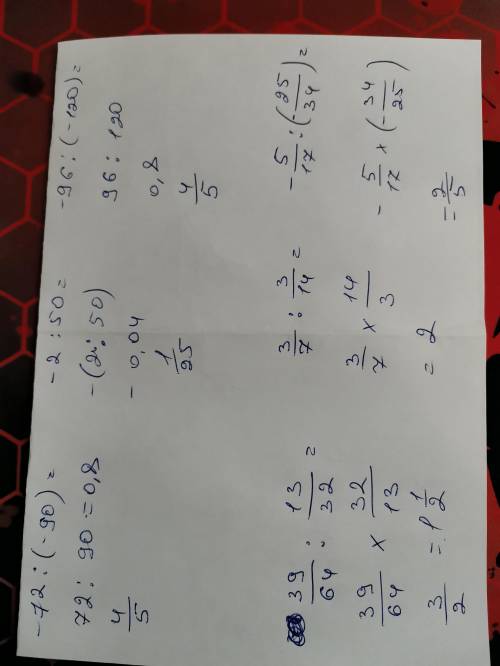 -72 : (-90) =
72 : 90 = 0,8
4/5
-2 : 50 =
-(2 : 50)
- 0,04
1/25
-96 : (-120) =
96 : 120
0,8
4/5
39/64 : 13/32 =
39/64 × 32/13
3/2 = 1 1/2
3/7 : 3/14 =
3/7 × 14/3
= 2
- 5/17 : (- 25/34) =
- 5/17 × (- 34/25)
= 2/5